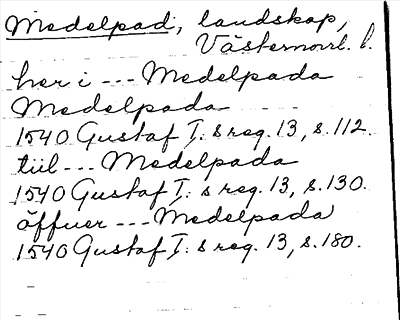 Medelpad, landskap,
Västernorrl. l.
her i --- Medelpada
Medelpada
1540 Gustaf I:s reg. 13, s. 112.
tiil --- Medelpada
1540 Gustaf I:s reg. 13, s. 130.
äffuer --- Medelpada
1540 Gustaf I:s reg. 13, s. 180.